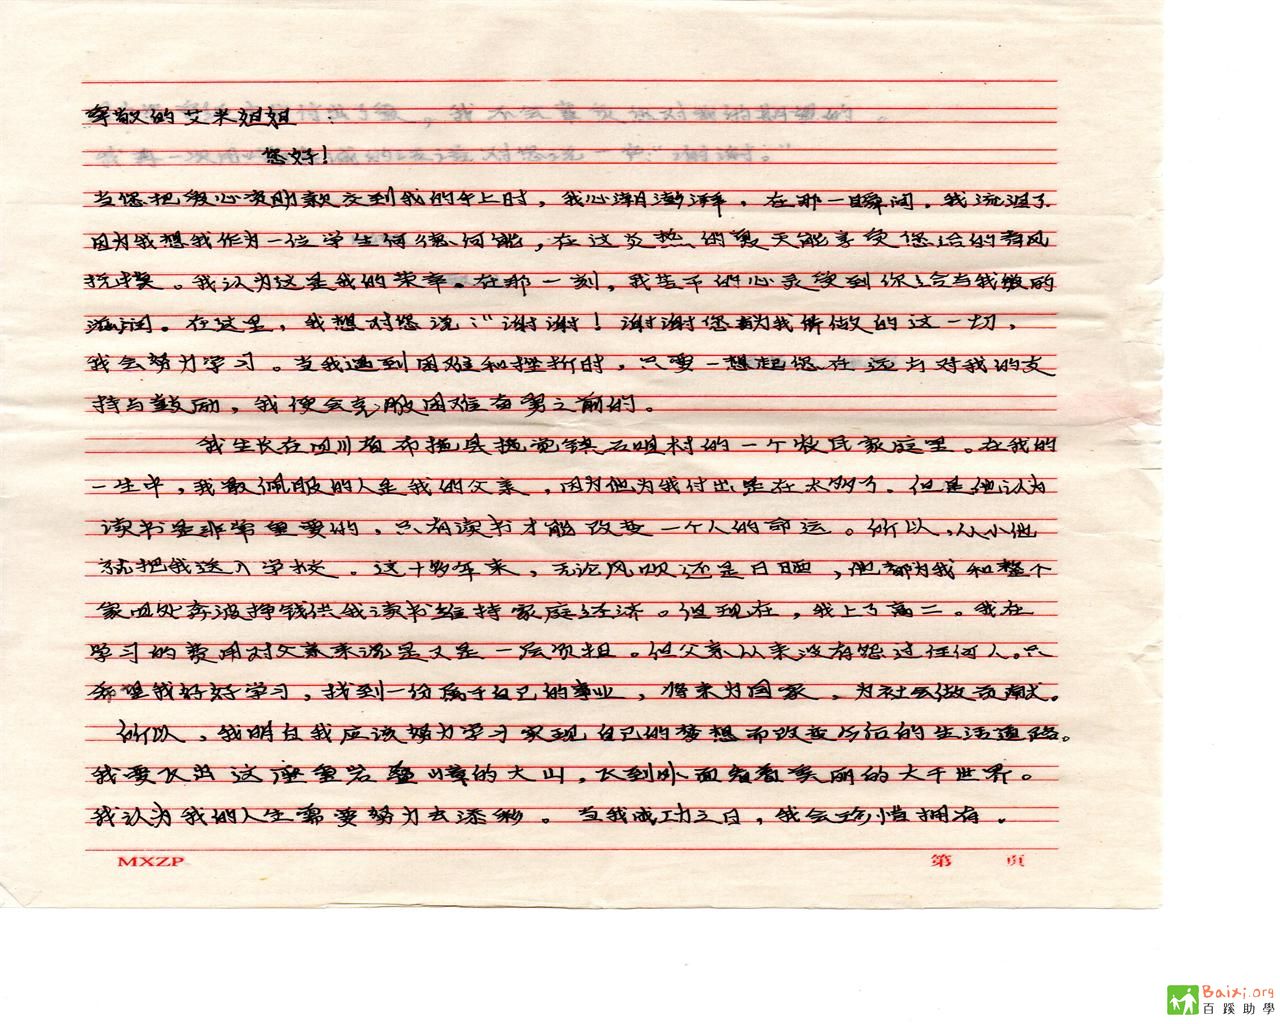 尊敬的艾米姐姐：
您好！
当您把爱心资助款交到我的手上时，我心潮澎湃。在那一瞬间，我流泪了
因为我想我作为一位学生何德何能，在这炎热的夏天能享受您给的春风
抚摸。我认为这是我的荣幸。在那一刻，我苦币的心灵受到你给与我般的
滋润。在这里，我想对您说："谢谢！谢谢您为我所做的这一切，
我会努力学习。当我遇到困难和挫折时，只要一想起您在远方对我的支
持与鼓励，我便会克服困难奋勇之前的。
我生长在四川省布拖县拖觉镇石咀村的一个农民家庭里。在我的
一生中，我最佩服的人是我的父亲，因为他为我付出是在太多了。但是他认为
读书是非常重要的，只有读书才能改变一个人的命运。所以，从小他
就把我送入学校。这十多年来，无论风吹还是日晒，他都为我和整个
家四处奔波挣钱供我读书维持家庭经济。但现在，我上了高二。我在
学习的费用对父亲来说是又是一层负担。但父亲从来没有怨过任何人。只
希望我好好学习，找到一份属于自己的事业，将来为国家，为社会做贡献。
所以，我明白我应该努力学习实现自己的梦想而改变今后的生活道路。
我要飞出这座重岩叠嶂的大山，飞到外面看看美丽的大千世界。
我认为我的人生需要努力去添彩。当我成功之日，我会珍惜拥有。
MXZP 第 页
Baixi.org
百蹊助學